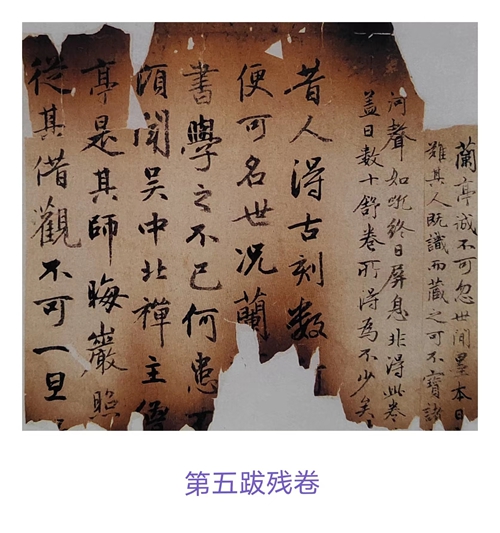 蘭亭誠不可忽世間墨本日
難其人既識而藏之可不寶諸
河聲如吼終日屏息非得此卷
蓋日數十舒卷所得為不少矣
昔人得古刻數
便可名世况蘭
書學之不已何患
頃聞吳中北禪主僧
亭是其師晦巖照
從其借觀不可一旦
第五跋残卷